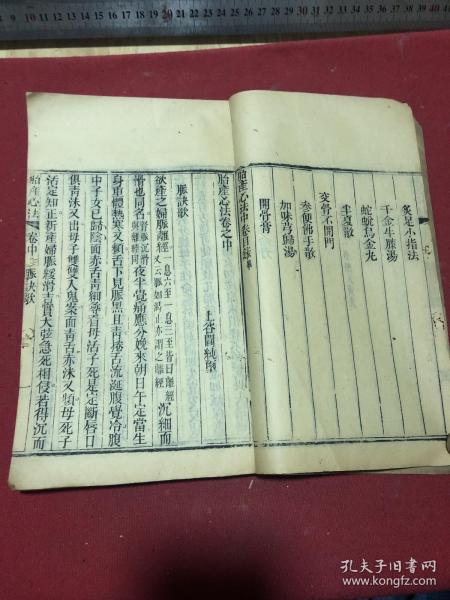 炙足小指法
千金牛膝湯
蛇蛻烏金丸
半夏散
交骨不開門
參便佛手散
加味芎歸湯
開骨膏
胎產心法中卷目錄
胎產心法卷之中
上谷閻純璽
脈訣歌
欲產之婦脈離經一息六至一息三至皆曰離經沉細而
滑也同名夜半覺痛應分娩來朝日午定當生
身重體熱寒又頻舌下見脈黑且青捲舌流涎腹覺冷腹
中子女已歸陰面赤舌青細尋看母活子死是定斷唇口
俱青沫又出母子雙雙人鬼案面青舌赤沫又頻母死子
活定知正新產婦脈緩滑吉實大弦急死相侵若得沉而
胎產心法 卷中 三 脈訣歌
孔夫子旧書网
www.kongfz.com